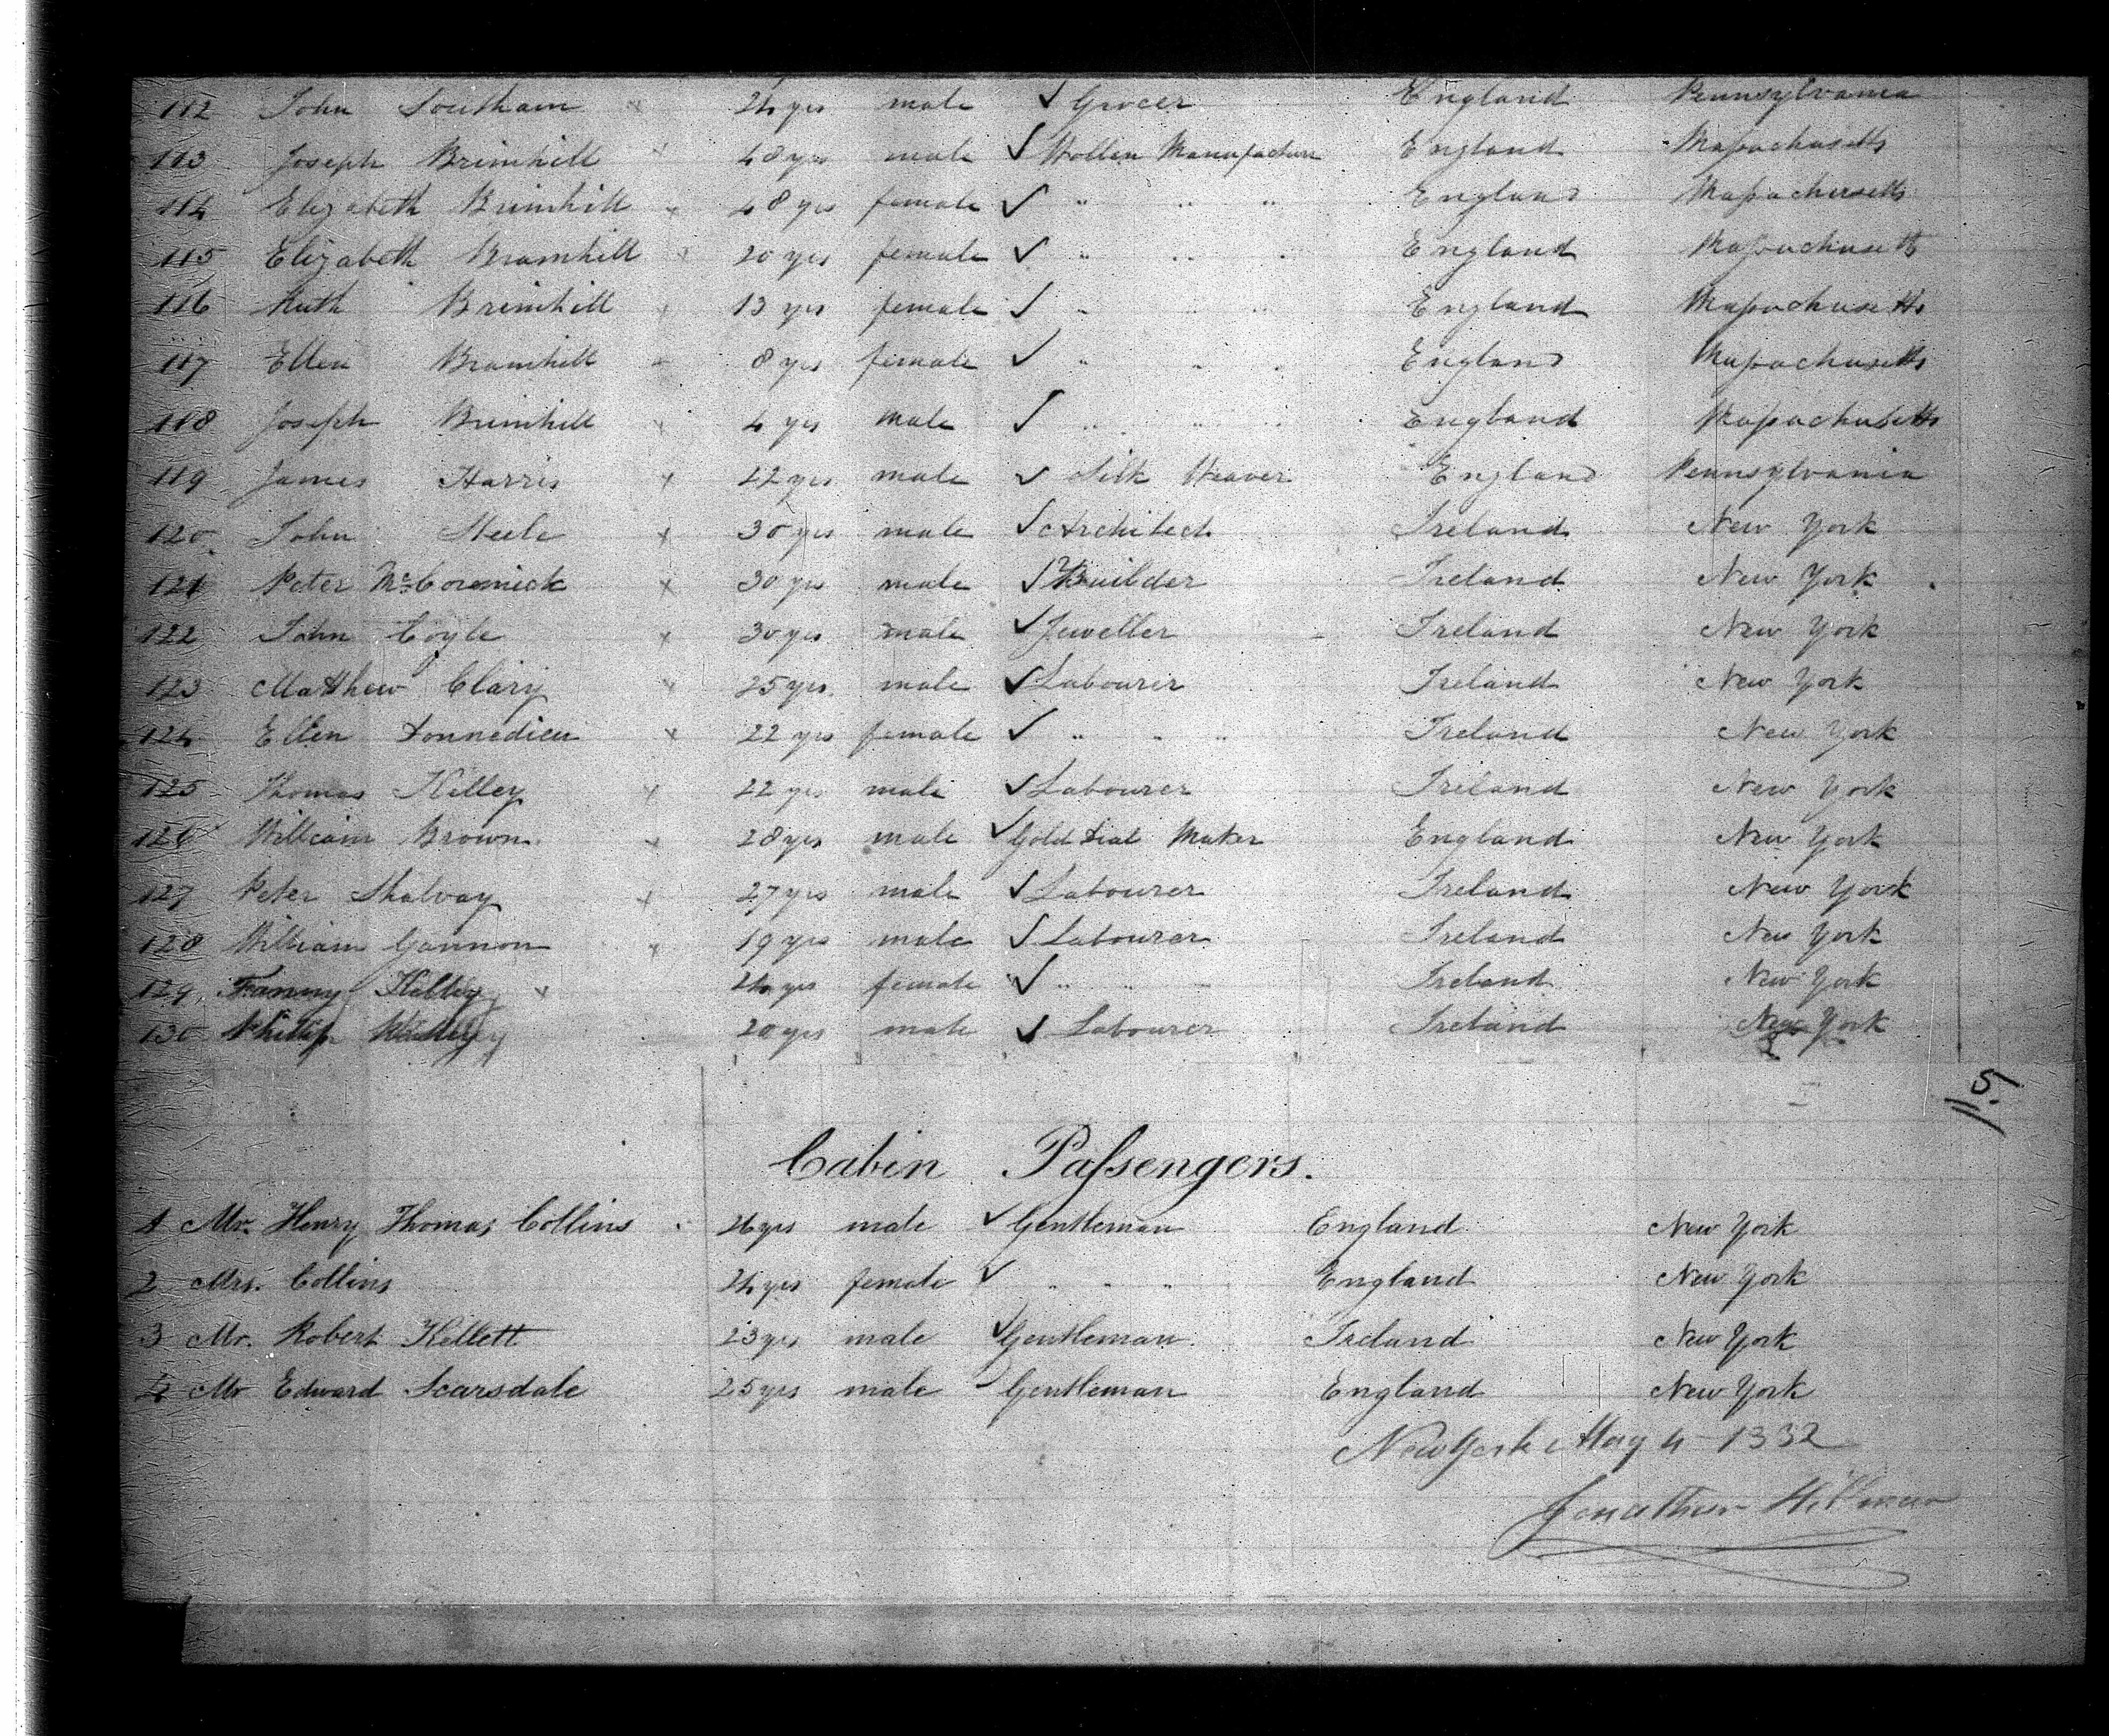 112 John Southam × 24 yrs male ✓ Grocer England Pennsylvania
113 Joseph Brimhill × 48 yrs male ✓ Wollen Manufacture England Maſsachusetts
114 Elizabeth Brimhill × 48 yrs female ✓ " " " England Maſsachusetts
115 Elizabeth Bramhill × 20 yrs female ✓ " " " England Maſsachusetts
116 Ruth Brimhill × 13 yrs female ✓ " " " England Maſsachusetts
117 Ellen Bramhill 8 yrs female ✓ " " " England Maſsachusetts
118 Joseph Brimhill × 4 yrs male ✓ " " " England Maſsachusetts
119 James Harris × 22 yrs male ✓ Silk Weaver England Pennsylvania
120 John Steele × 30 yrs male ✓ Architect Ireland New York
121 Peter McCormick × 30 yrs male ✓ Builder Ireland New York
122 John Coyle × 30 yrs male ✓ Jeweller Ireland New York
123 Matthew Clary × 25 yrs male ✓ Labourer Ireland New York
124 Ellen × 22 yrs female ✓ " " " Ireland New York
125 Thomas Killey × 22 yrs male ✓ Labourer Ireland New York
126 William Brown × 28 yrs male ✓ Gold Dial Maker England New York
127 Peter Shalvay × 27 yrs male ✓ Labourer Ireland New York
128 William Gannon × 19 yrs male ✓ Labourer Ireland New York
129 Fanny Kelley × 24 yrs female ✓ " " " Ireland New York
130 Phillip 20 yrs male ✓ Labourer Ireland New York
Cabin Paſsengers.
1 Mr. Henry Thomas Collins 26 yrs male ✓ Gentleman England New York
2 Mrs. Collins 24 yrs female ✓ " " " England New York
3 Mr. Robert Kellett 23 yrs male ✓ Gentleman Ireland New York
4 Mr Edward Scarsdale 25 yrs male Gentleman England New York
New York May 4 1832
Jonathan Hillman